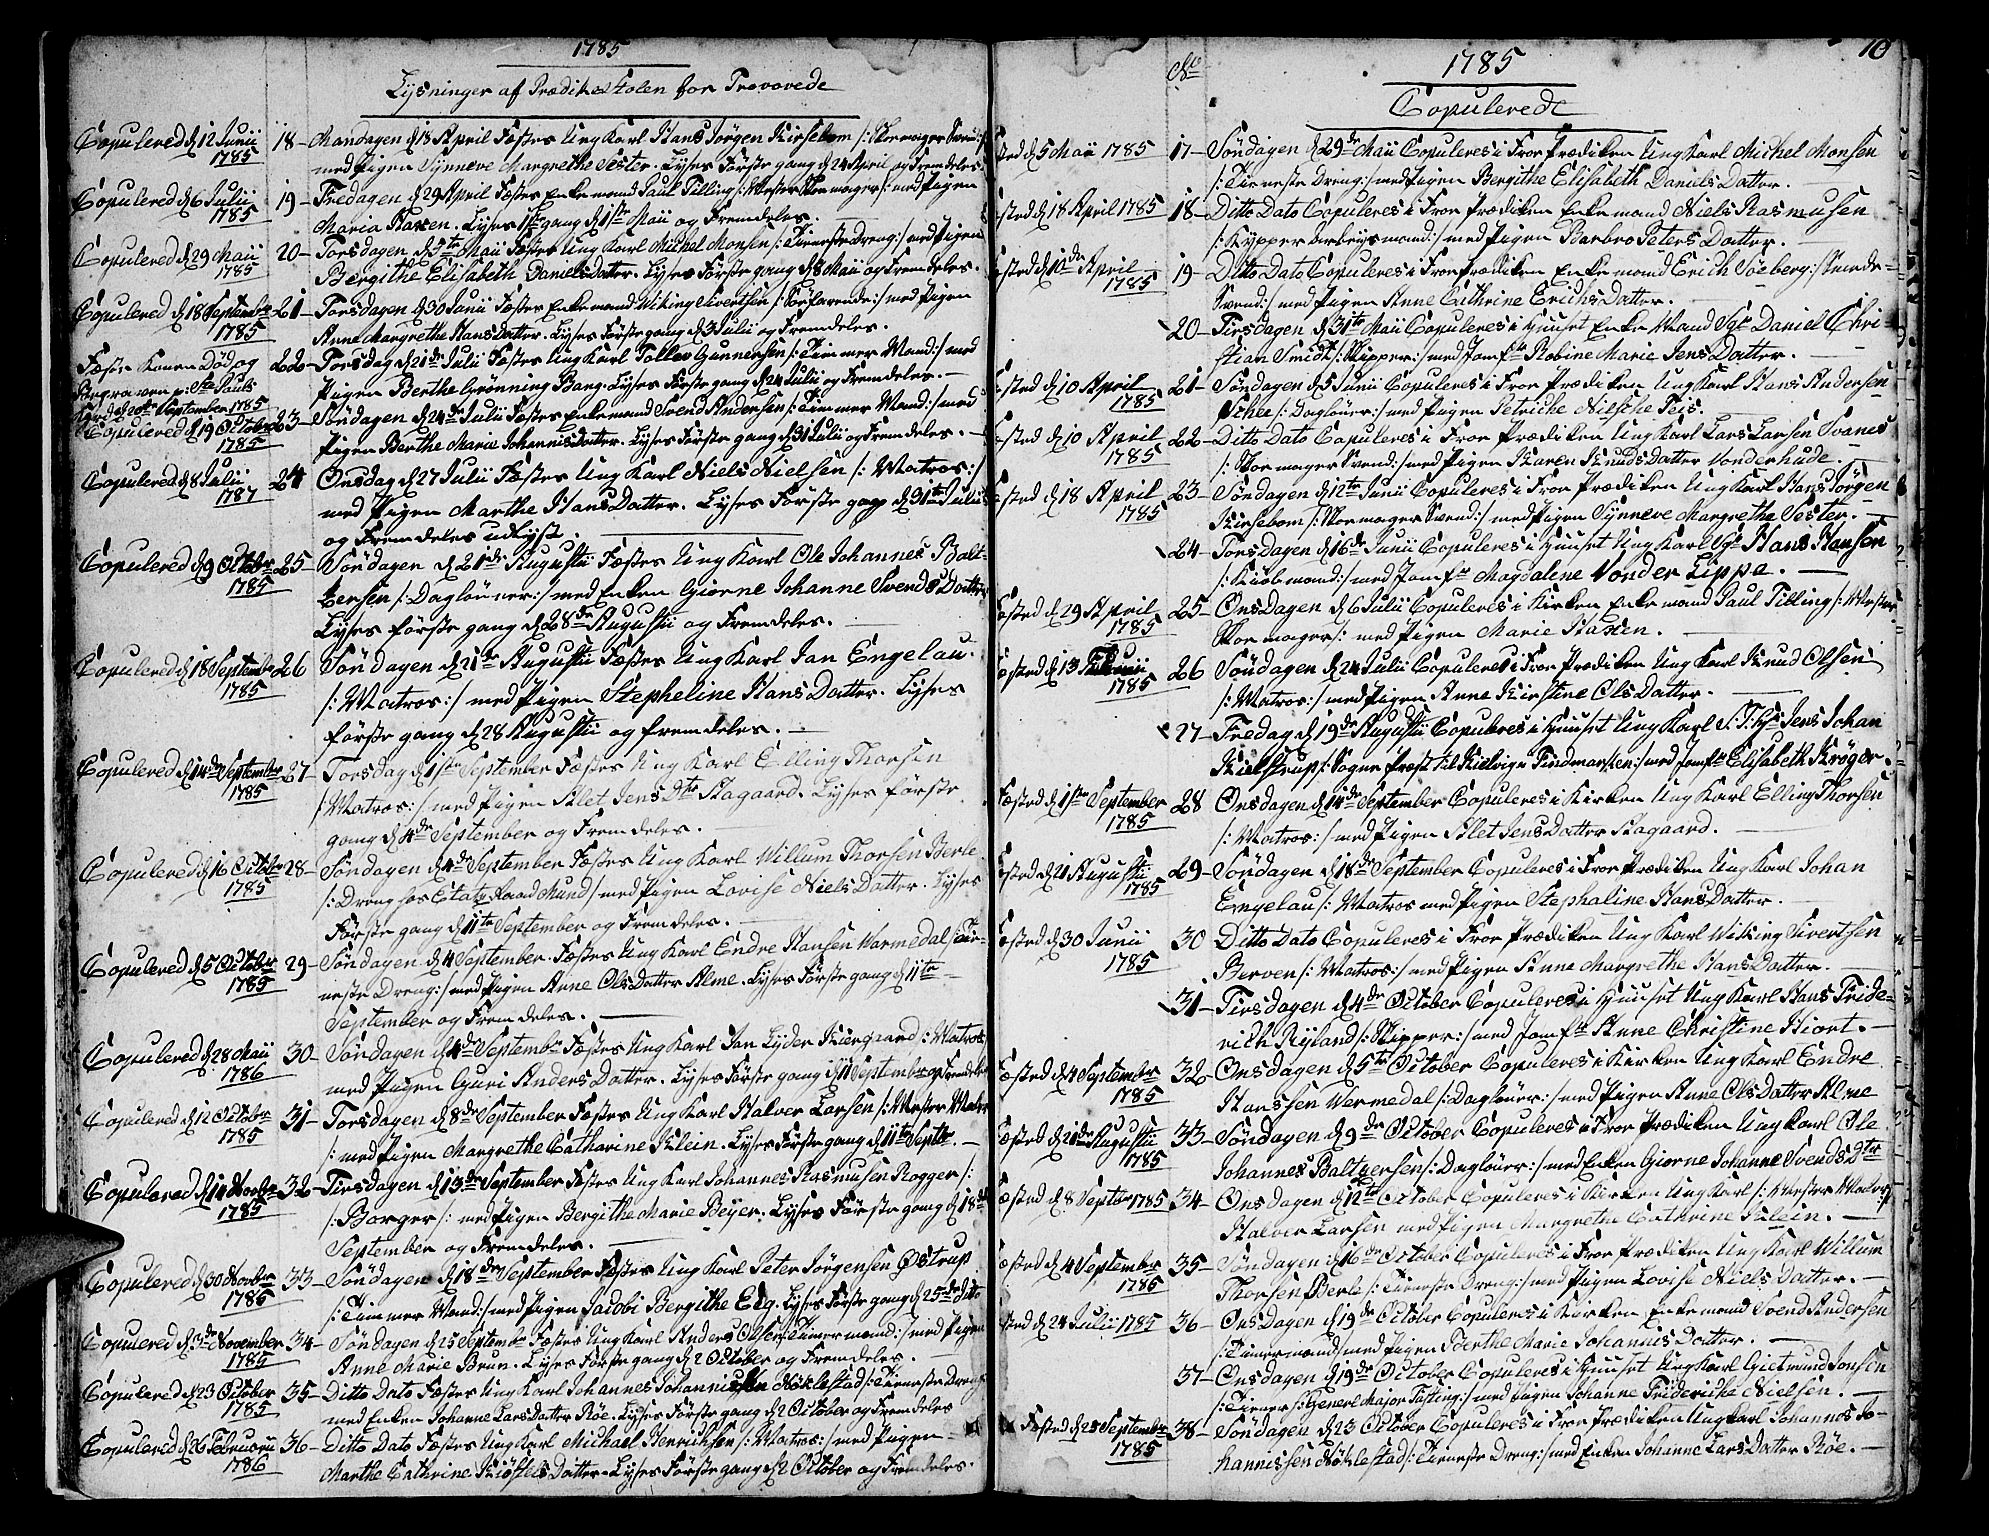 1785
Lysninger af Prædikestolen for Trovovede
Copulered d 12 Junii 1785
18- Mandagen d 18 April Fæstes Ung Karl Hans Jørgen Kirsebom /: Skomager Svend:/
med Pigen Synneve Margrethe Sester. Lyses Første gang d 24 April og Fremdeles.
Copulered d 6 Julii 1785
19- Fredagen d 29 April Fæstes Enkemand Paul Tilling /: Mester Skomager:/ med Pigen
Maria Staxen. Lyses 1ste gang d 1ste Maii og Fremdeles.
Copulered d 29 Maii 1785
20- Torsdagen d 5te Maii Fæstes Ung Karl Michel Monsen /: Tieneste Dreng:/ med Pigen
Bergithe Elisabeth Danielsdatter. Lyses Første gang d 8 Maii og Fremdeles.
Copulered d 18 Septembr 1785
21- Torsdagen d 30 Junii Fæstes Enkemand Wiking Sivertsen /: Søefarende:/ med Pigen
Anne Margrethe Hans Datter. Lyses Første gang d 3 Julii og Fremdeles.
Fæste Konen Død og
Begraven p: Ste Pauls
Kirke d 20de September 1785
22- Torsdag d 21de Julii Fæstes Ung Karl Tollev Gunnersen /: Timmer Mand:/ med
Pigen Berthe Grønning Bang. Lyses Første gang d 24 Julii og Fremdeles.
Copulered d 19 October 1785
23- Søndagen d 24de Julii Fæstes Enkemand Svend Andersen /: Timmer Mand:/ med
Pigen Berthe Marie Johannisdatter. Lyses Første gang d 31 Julii og Fremdeles.
Copulered d 8 Julii 1787
24 Onsdag d 27 Julii Fæstes Ung Karl Niels Nielsen /: Matros:/
med Pigen Marthe Hans Datter. Lyses Første gang d 31te Julii
og Fremdeles udlyst.
Copulered d 9 Octobr 1785
25- Søndagen d 21de Augustii Fæstes Ung Karl Ole Johannes Balt-
zersen /: Dagløner:/ med Enken Giorne Johanne Svends Datter
Lyses første gang d 28de Augustii og Fremdeles.
Copulered d 18 Septembr 1785
26 Søndagen d 21de Augustii Fæstes Ung Karl Jan Engelau.
/: Matros:/ med Pigen Stepheline Hans Datter. Lyses
første gang d 28 Augustii og fremdeles.
Copulered d 14de September 1785
27- Torsdag d 1ste September Fæstes Ung Karl Elling Thorsen
/: Matros:/ med Pigen Sklet Jens Dtr Stagaard. Lyses første
gang d 4de September og Fremdeles.
Copulered d 16 Octobr 1785
28- Søndagen d 4de September Fæstes Ung Karl Willum Thorsen Berle
/: Dreng hos Etats Raad Mund/ med Pigen Lovise Niels Datter. Lyses
Første gang d 11te September og Fremdeles.
Copulered d 5 October 1785
29- Søndagen d 4 September. Fæstes Ung Karl Endre Hansen Warmedal /: Tie-
neste Dreng:/ med Pigen Anne Ols Datter Alme. Lyses Første gang d 11te
September og Fremdeles.
Copulered d 28 Maii 1786
30- Søndagen d 4de Septembr Fæstes Ung Karl Jan Lyder Kiergaard /: Matros
med Pigen Guri Anders Datter. Lyses Første gang d 11 Septembr og Fremdeles
Copulered d 12 Octobr 1785
31- Torsdagen d 8de September Fæstes Ung Karl Halver Larsen /: Mester Maler
/: med Pigen Margrethe Catharine Klein. Lyses Første gang d 11te Septbr.
Copulered d 14 Novbr 1785
32- Tirsdagen d 13de September Fæstes Ung Karl Johannes Rasmusen Rogger /:
/: Borger /: med Pigen Bergithe Marie Beyer. Lyses Første gang d 18de
September og Fremdeles.
Copulered d 30 Novbr 1785
33- Søndagen d 18de September Fæstes Ung Karl Peter Jørgensen Østrup
/: Timmer Mand:/ med Pigen Jacobi Bergithe Eeg. Lyses Første gang d 25de dito
Copulered d 3de November 1785
34- Søndagen d 25 Septembr Fæstes Ung Karl Anders Olsen /: Timermand:/ med Pigen
Anne Marie Brun. Lyses Første gang d 2 October og Fremdeles.
Copulered d 23 October 1785
35- Ditto Dato Fæstes Ung Karl Johannes Johannissen Nøklestad /: Tieneste Dreng
med Enken Johanne Lars Datter Røe. Lyses Første gang d 2 October og Fremdeles
Copulered d 26 Februarii 1786
36- Ditto Dato Fæstes Ung Karl Michael Henrichsen /: Matros:/ med Pigen
Marthe Cathrine Kiøstels Datter. Lyses Første gang d 2 October og Fremdeles.
10
No
1785
Copulerede
sted d 5 Maii 1785
17- Søndagen d 29de Maii Copuleres i Fror Prædiken Ung Karl Michel Monsen
/: Tieneste Dreng:/ med Pigen Bergithe Elisabeth Daniels Datter.
sted d 18 April 1785
18- Ditto Dato Copuleres i Fror Prædiken Enkemand Niels Rasmusen
/: Kypper Arbeysmand:/ med Pigen Barbro Peters Datter.
sted d 10de April 1785
19- Ditto Dato Copuleres i Fror Prædiken Enkemand Erich Søeberg /: Smede-
Svend:/ med Pigen Anne Cathrine Erichs Datter.
20- Tirsdagen d 31te Maii Copuleres i Huuset Enke Mand Sgr Daniel Chri-
stian Smidt /: Skipper:/ med Jomfr Robine Marie Jens Datter.
sted d 10 April 1785
21- Søndagen d 5 Junii Copuleres i Fror Prædiken Ung Karl Hans Andersen
Schee /: Dagløner:/ med Pigen Petriche Nielsche Feis.
sted d 10 April 1785
22- Ditto Dato Copuleres i Fror Prædiken Ung Karl Lars Larsen Svanes
/: Skomager Svend:/ med Pigen Karen Knuds Datter Vonderhude.
sted d 18 April 1785
23- Søndagen d 12te Junii Copuleres i Fror Prædiken Ung Karl Hans Jørgen
Kirsebom /: Skomager Svend:/ med Pigen Synneve Margrethe Sester.
24- Torsdagen d 16de Junii Copuleres i Huuset Ung Karl Sgr Hans Hansen
/: Kiøbmand:/ med Jomfr Magdalene Vonder Lippe.
Fæsted d 29 April 1785
25- Onsdagen d 6 Julii Copuleres i Kirken Enkemand Paul Tilling /: Mester
Skomager /: med Pigen Marie Staxen.
Fæsted d 13 Junii 1785
26 Søndagen d 24 Julii Copuleres i Fror Prædiken Ung Karl Knud Olsen
/: Matros:/ med Pigen Anne Kirstine Ols Datter.
27- Fredag d 19de Augustii Copuleres i Huuset Ung Karl S: T: Hr Jens Johan
Kielstrup /: Sogne Præst til Kielvig i Findmarken:/ med Jomfr Elisabeth Krøger.
Fæsted d 1ste September 1785
28 Onsdagen d 14de September Copuleres i Kirken Ung Karl Elling Thorsen
/: Matros:/ med Pigen Sklet Jens Datter Stagaard.
sted d 21 Augustii 1785
29- Søndagen d 18de September Copuleres i Fror Prædiken Ung Karl Johan
Engelau /: Matros med Pigen Stephaline Hans Datter.
Fæsted d 30 Junii 1785
30 Ditto Dato Copuleres i Fror Prædiken Ung Karl Wiking Sivertsen
Berven /: Matros:/ med Pigen Anne Margrethe Hans Datter.
31- Tirsdagen d 4de October Copuleres i Huuset Ung Karl Hans Fride-
rich Ryland /: Skipper:/ med Jomfr Anne Christine Hiort.
Fæsted d 4 Septembr 1785
32- Onsdagen d 5te October Copuleres i Kirken Ung Karl Endre
Hanssen Vermedal /: Dagløner:/ med Pigen Anne Ols Datter Alme
Fæsted d 21de Augustii 1785
33- Søndagen d 9de October Copuleres i Fror Prædiken Ung Karl Ole
Johannes Baltzersen /: Dagløner:/ med Enken Giorne Johanne Svends Dtr
Fæsted d 8 Septbr 1785
34- Onsdagen d 12te October Copuleres i Kirken Ung Karl /: Mester Maler /:
Halver Larsen med Pigen Margrethe Cathrine Klein.
Fæsted d 4 September 1785
35- Søndagen d 16de October Copuleres i Fror Prædiken Ung Karl Willum
Thorsen Berle /: Tieneste Dreng:/ med Pigen Lovise Niels Datter.
sted d 24 Julii 1785
36- Onsdagen d 19de October Copuleres i Kirken Enkemand Svend Andersen
/: Timermand/ med Pigen Berthe Marie Johannis Datter.
37- Onsdagen d 19de October Copuleres i Huuset Ung Karl Gietmund Jonsen
/: Tiener /: Generl Major Fasting:/ med Pigen Johanne Friderriche Nielsen.
Fæsted d 25 Septembr 1785
38- Søndagen d 23 October Copuleres i Fror Prædiken Ung Karl Johannes Jo-
hannissen Nøklestad /: Tieneste Dreng:/ med Enken Johanne Lars Datter Røe.